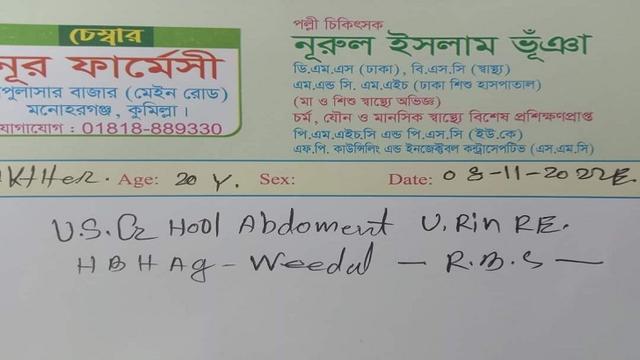 চেম্বার
নূর ফার্মেসী
পুলাসার বাজার (মেইন রোড)
মনোহরগঞ্জ, কুমিল্লা।
যোগাযোগ : 01818-889330
পল্লী চিকিৎসক
নূরুল ইসলাম ভূঁঞা
ডি.এম.এস (ঢাকা), বি.এস.সি (স্বাস্থ্য)
এম.এন্ড সি. এম.এইচ (ঢাকা শিশু হাসপাতাল)
(মা ও শিশু স্বাস্থ্যে অভিজ্ঞ)
চর্ম, যৌন ও মানসিক স্বাস্থ্যে বিশেষ প্রশিক্ষণপ্রাপ্ত
পি.এম.এইচ.সি এন্ড পি.এস.সি (ইউ.কে)
এফ.পি. কাউন্সিলিং এন্ড ইনজেক্টবল কন্ট্রাসেপটিভ (এস.এম.সি)
Age: 20 Y. Sex: Date:
U.S.G Hool Abdoment U.Rin RE.
HBHAg - Weedal - R.B.S -